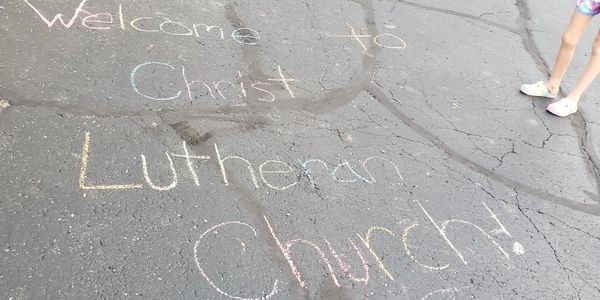 Welcome to
Christ
Lutheran
Church!